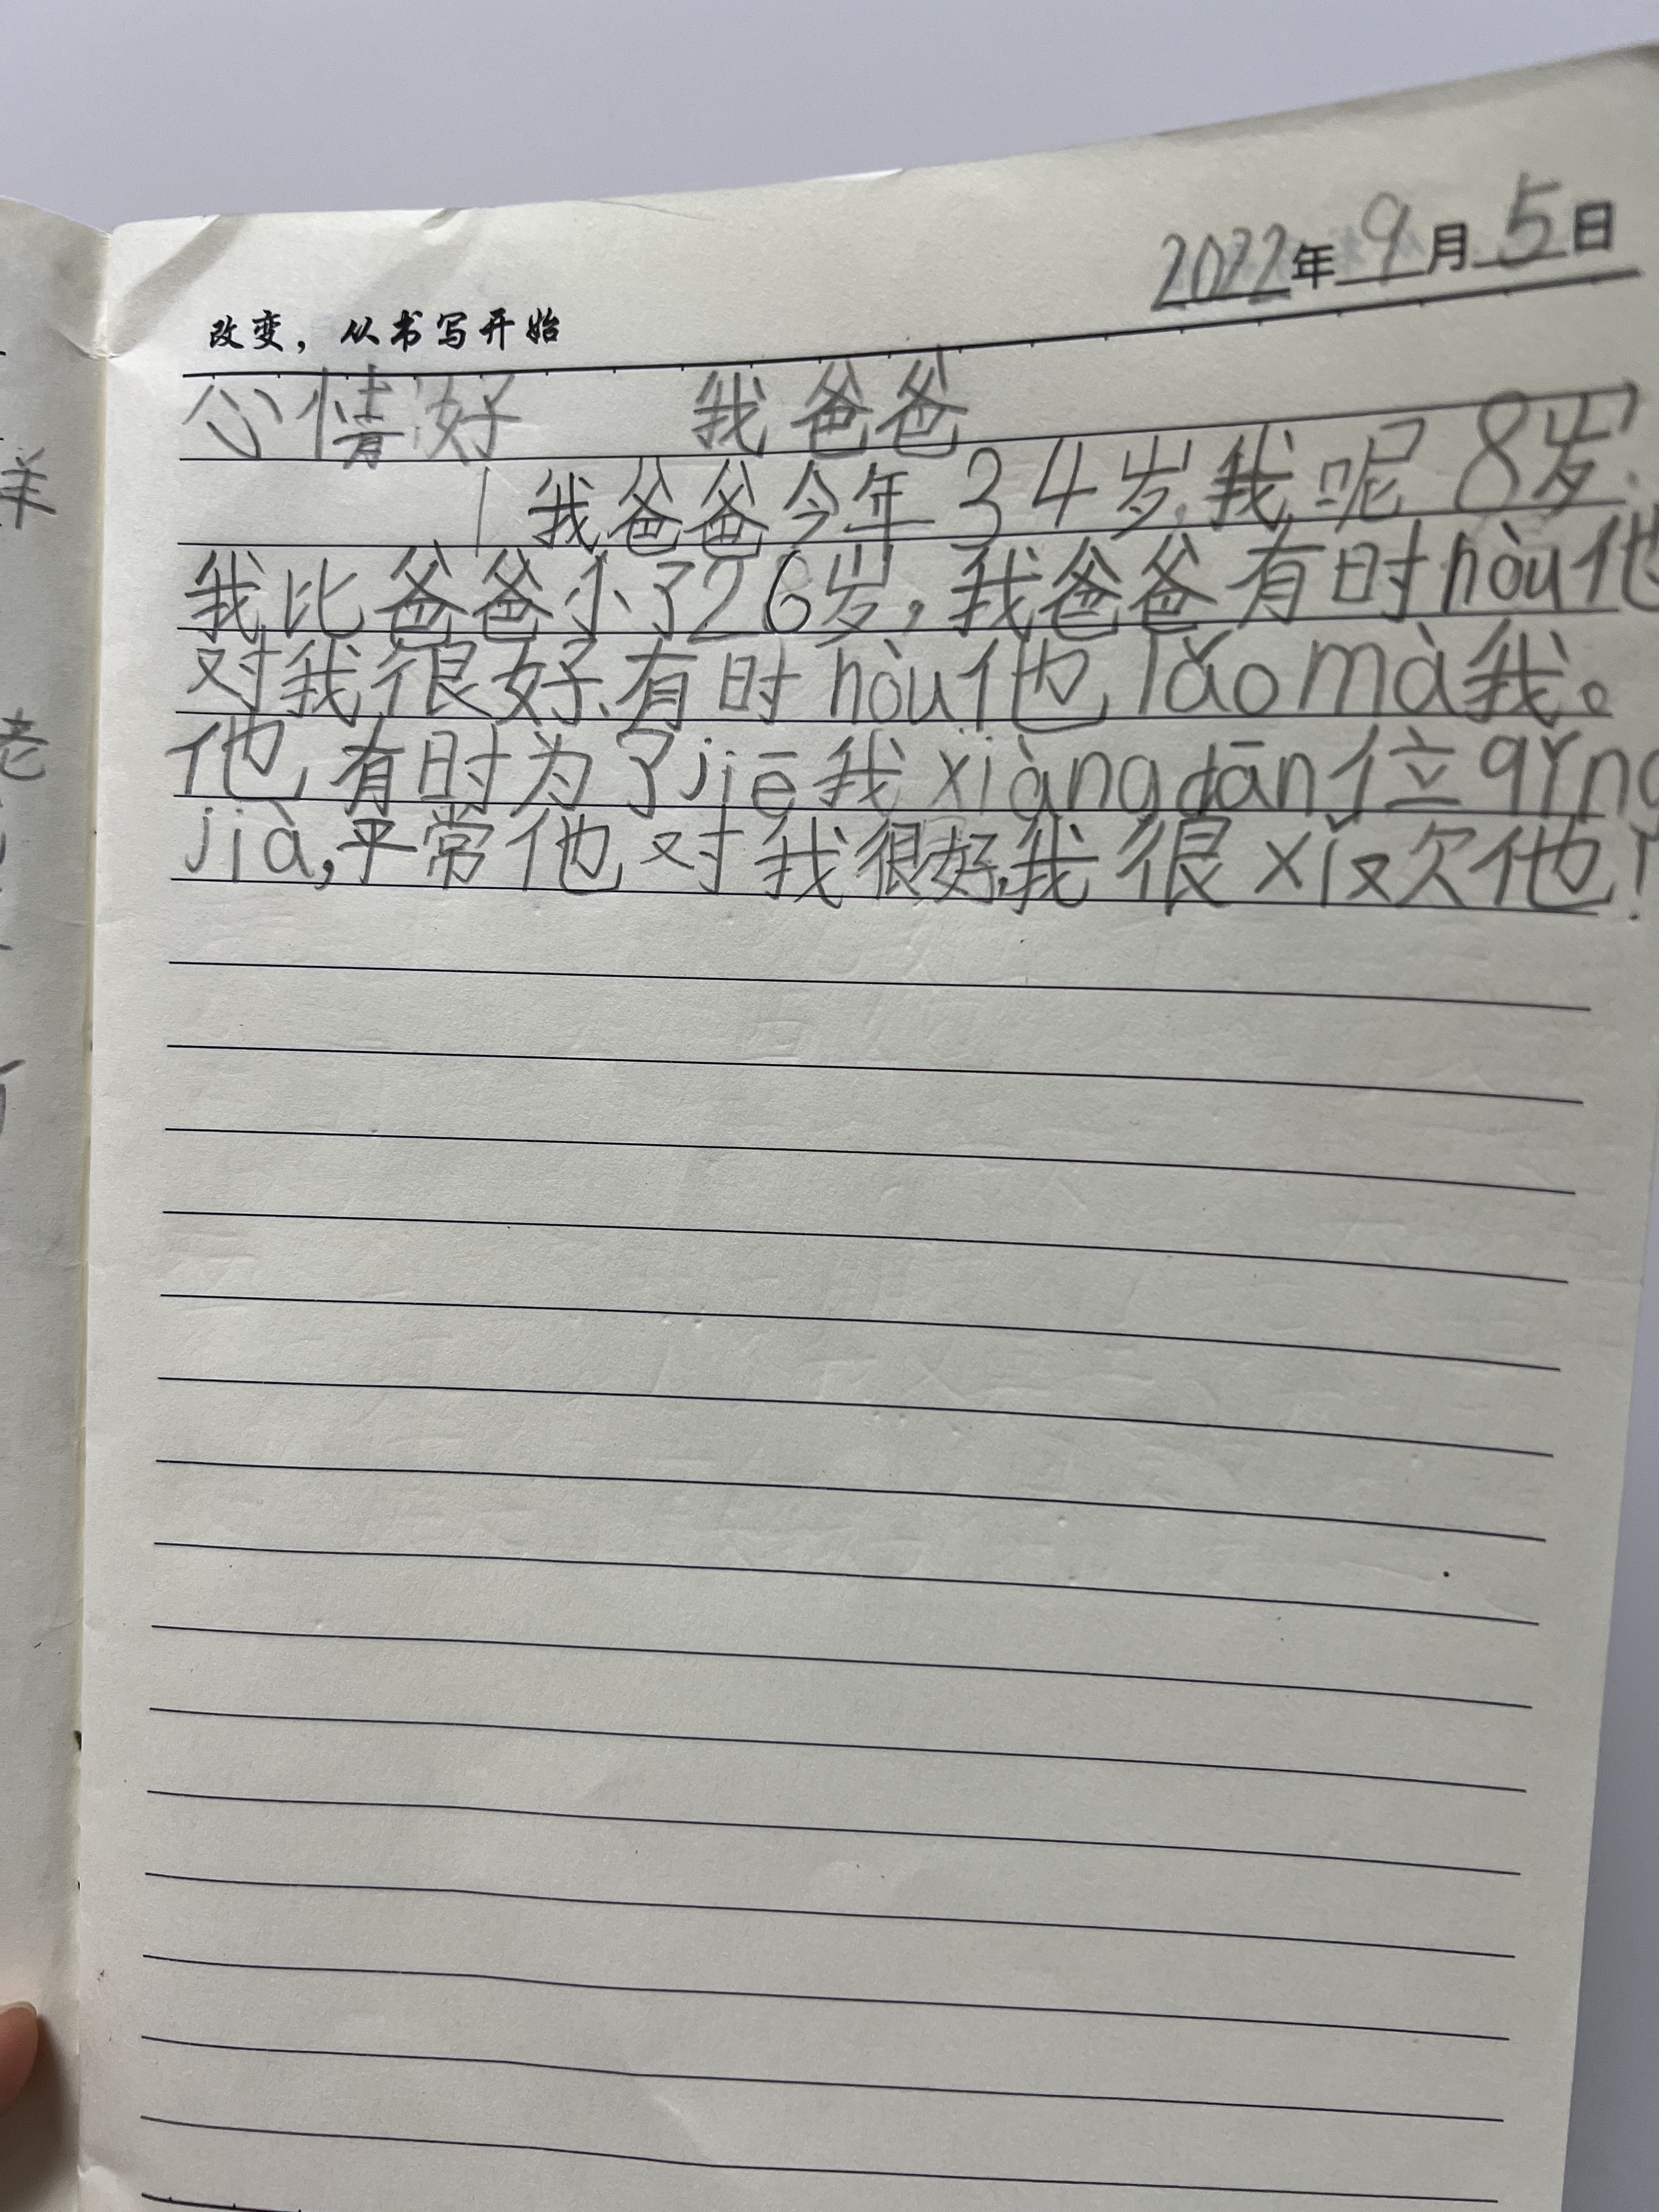 2022年9月5日
改变，从书写开始
心情好 我爸爸
我爸爸今年34岁,我呢8岁.
我比爸爸小了26岁,我爸爸有时hòu他
对我很好、有时hòu他lǎo mà我。
他有时为了jiē我xiàng dān位qǐng
jià,平常他对我很好,我很xǐ欢他!
样
老